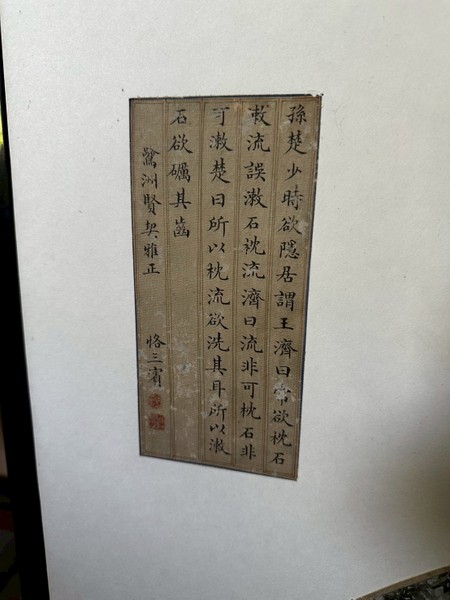 孫楚少時欲隱居謂王濟曰當欲枕石
漱流誤漱石枕流濟曰流非可枕石非
可漱楚曰所以枕流欲洗其耳所以漱
石欲礪其齒
洲賢契雅正
恪三濱